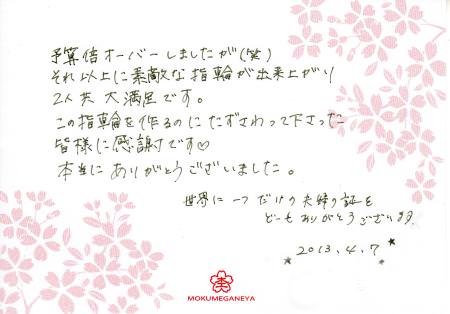 予算倍オーバーしましたが(笑)
それ以上に素敵な指輪が出来上がり
2人共大満足です。
この指輪を作るのにたずさわって下さった
皆様に感謝です♡
本当にありがとうございました。
世界に一つだけの夫婦の証を
どーもありがとうございます
2013.4.7
MOKUMEGANEYA